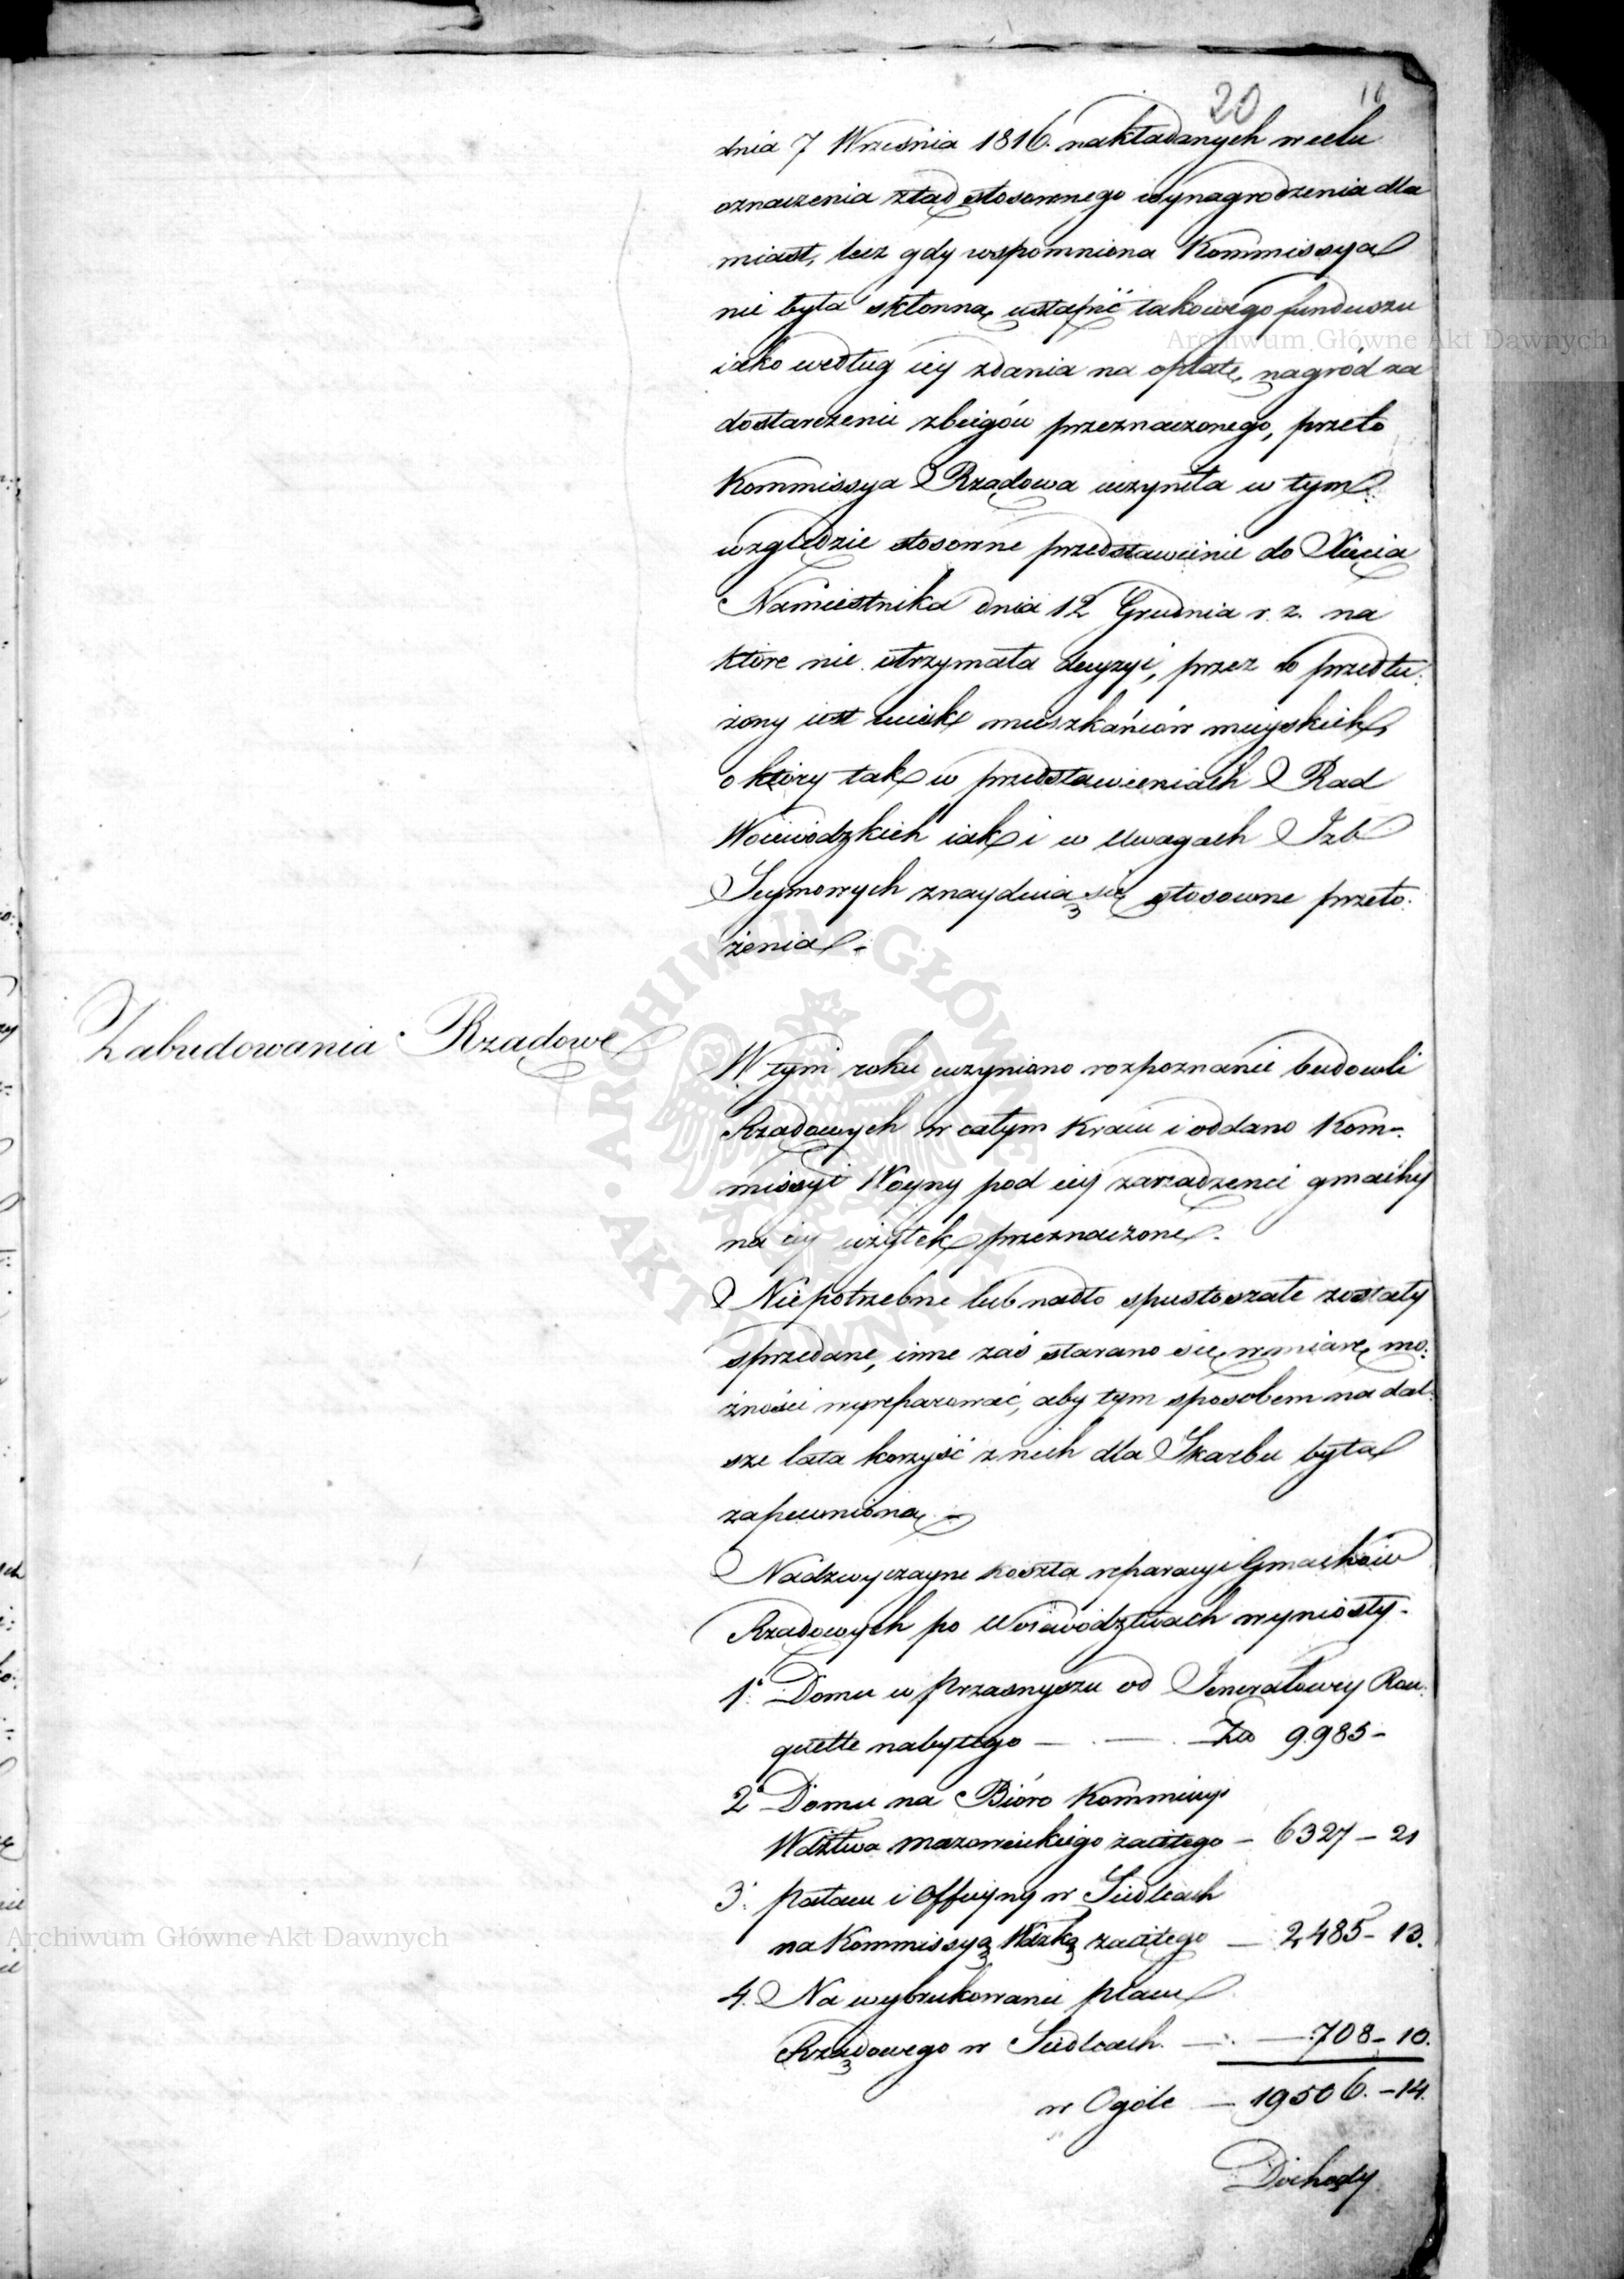 20
dnia 7 Września 1816. nakładanych w celu
oznaczenia ztąd stosownego wynagrodzenia dla
miast, lecz gdy wspomniona Kommissya
nie była skłonną ustąpić takowego funduszu
iako według iey zdania na opłatę nagród za
dostarczenie zbiegów przeznaczonego, przeto
Kommissya Rządowa uczyniła w tym
względzie stosowne przedstawienie do Xięcia
Namiestnika dnia 12 Grudnia r. z. na
które nie otrzymała decyzyi, przez to przedłu:
żony iest ucisk mieszkańców mieyskich,
o który tak w przedstawieniach Rad
Woiewódzkich iak i w Uwagach Izb
Seymowych znayduią się stosowne przeło:
żenia.
Zabudowania Rządowe
W tym roku uczyniono rozpoznanie budowli
Rządowych w całym Kraiu i oddano Kom-
missyi Woyny pod iey zarządzenie gmachy
na iey użytek przeznaczone.
Niepotrzebne lub nadto spustoszałe zostały
sprzedane, inne zaś starano się w miarę mo:
żności wyreparować, aby tym sposobem na dal:
sze lata korzyść z nich dla Skarbu była
zapewniona. -
Nadzwyczayne koszta reparacyi Gmachów
Rządowych po Woiewództwach wyniosły.
1. Domu w Przasnyszu od Jenerałowey Rou:
quette nabytego — . — . Zło 9.985 -
2 Domu na Bióro Kommissyi
Wdztwa Mazowieckiego zaiętego - 6327 - 21
3. Pałacu i Officyny w Siedlcach
na Kommissyą Wdzką zaiętego — 2,485 - 13.
4. Na wybrukowanie placu
Rządowego w Siedlcach. — . — 708 - 10.
w Ogóle — 19506. - 14.
Dochody
Archiwum Główne Akt Dawnych
Archiwum Główne Akt Dawnych
ARCHIWUM GŁÓWNE
AKT DAWNYCH